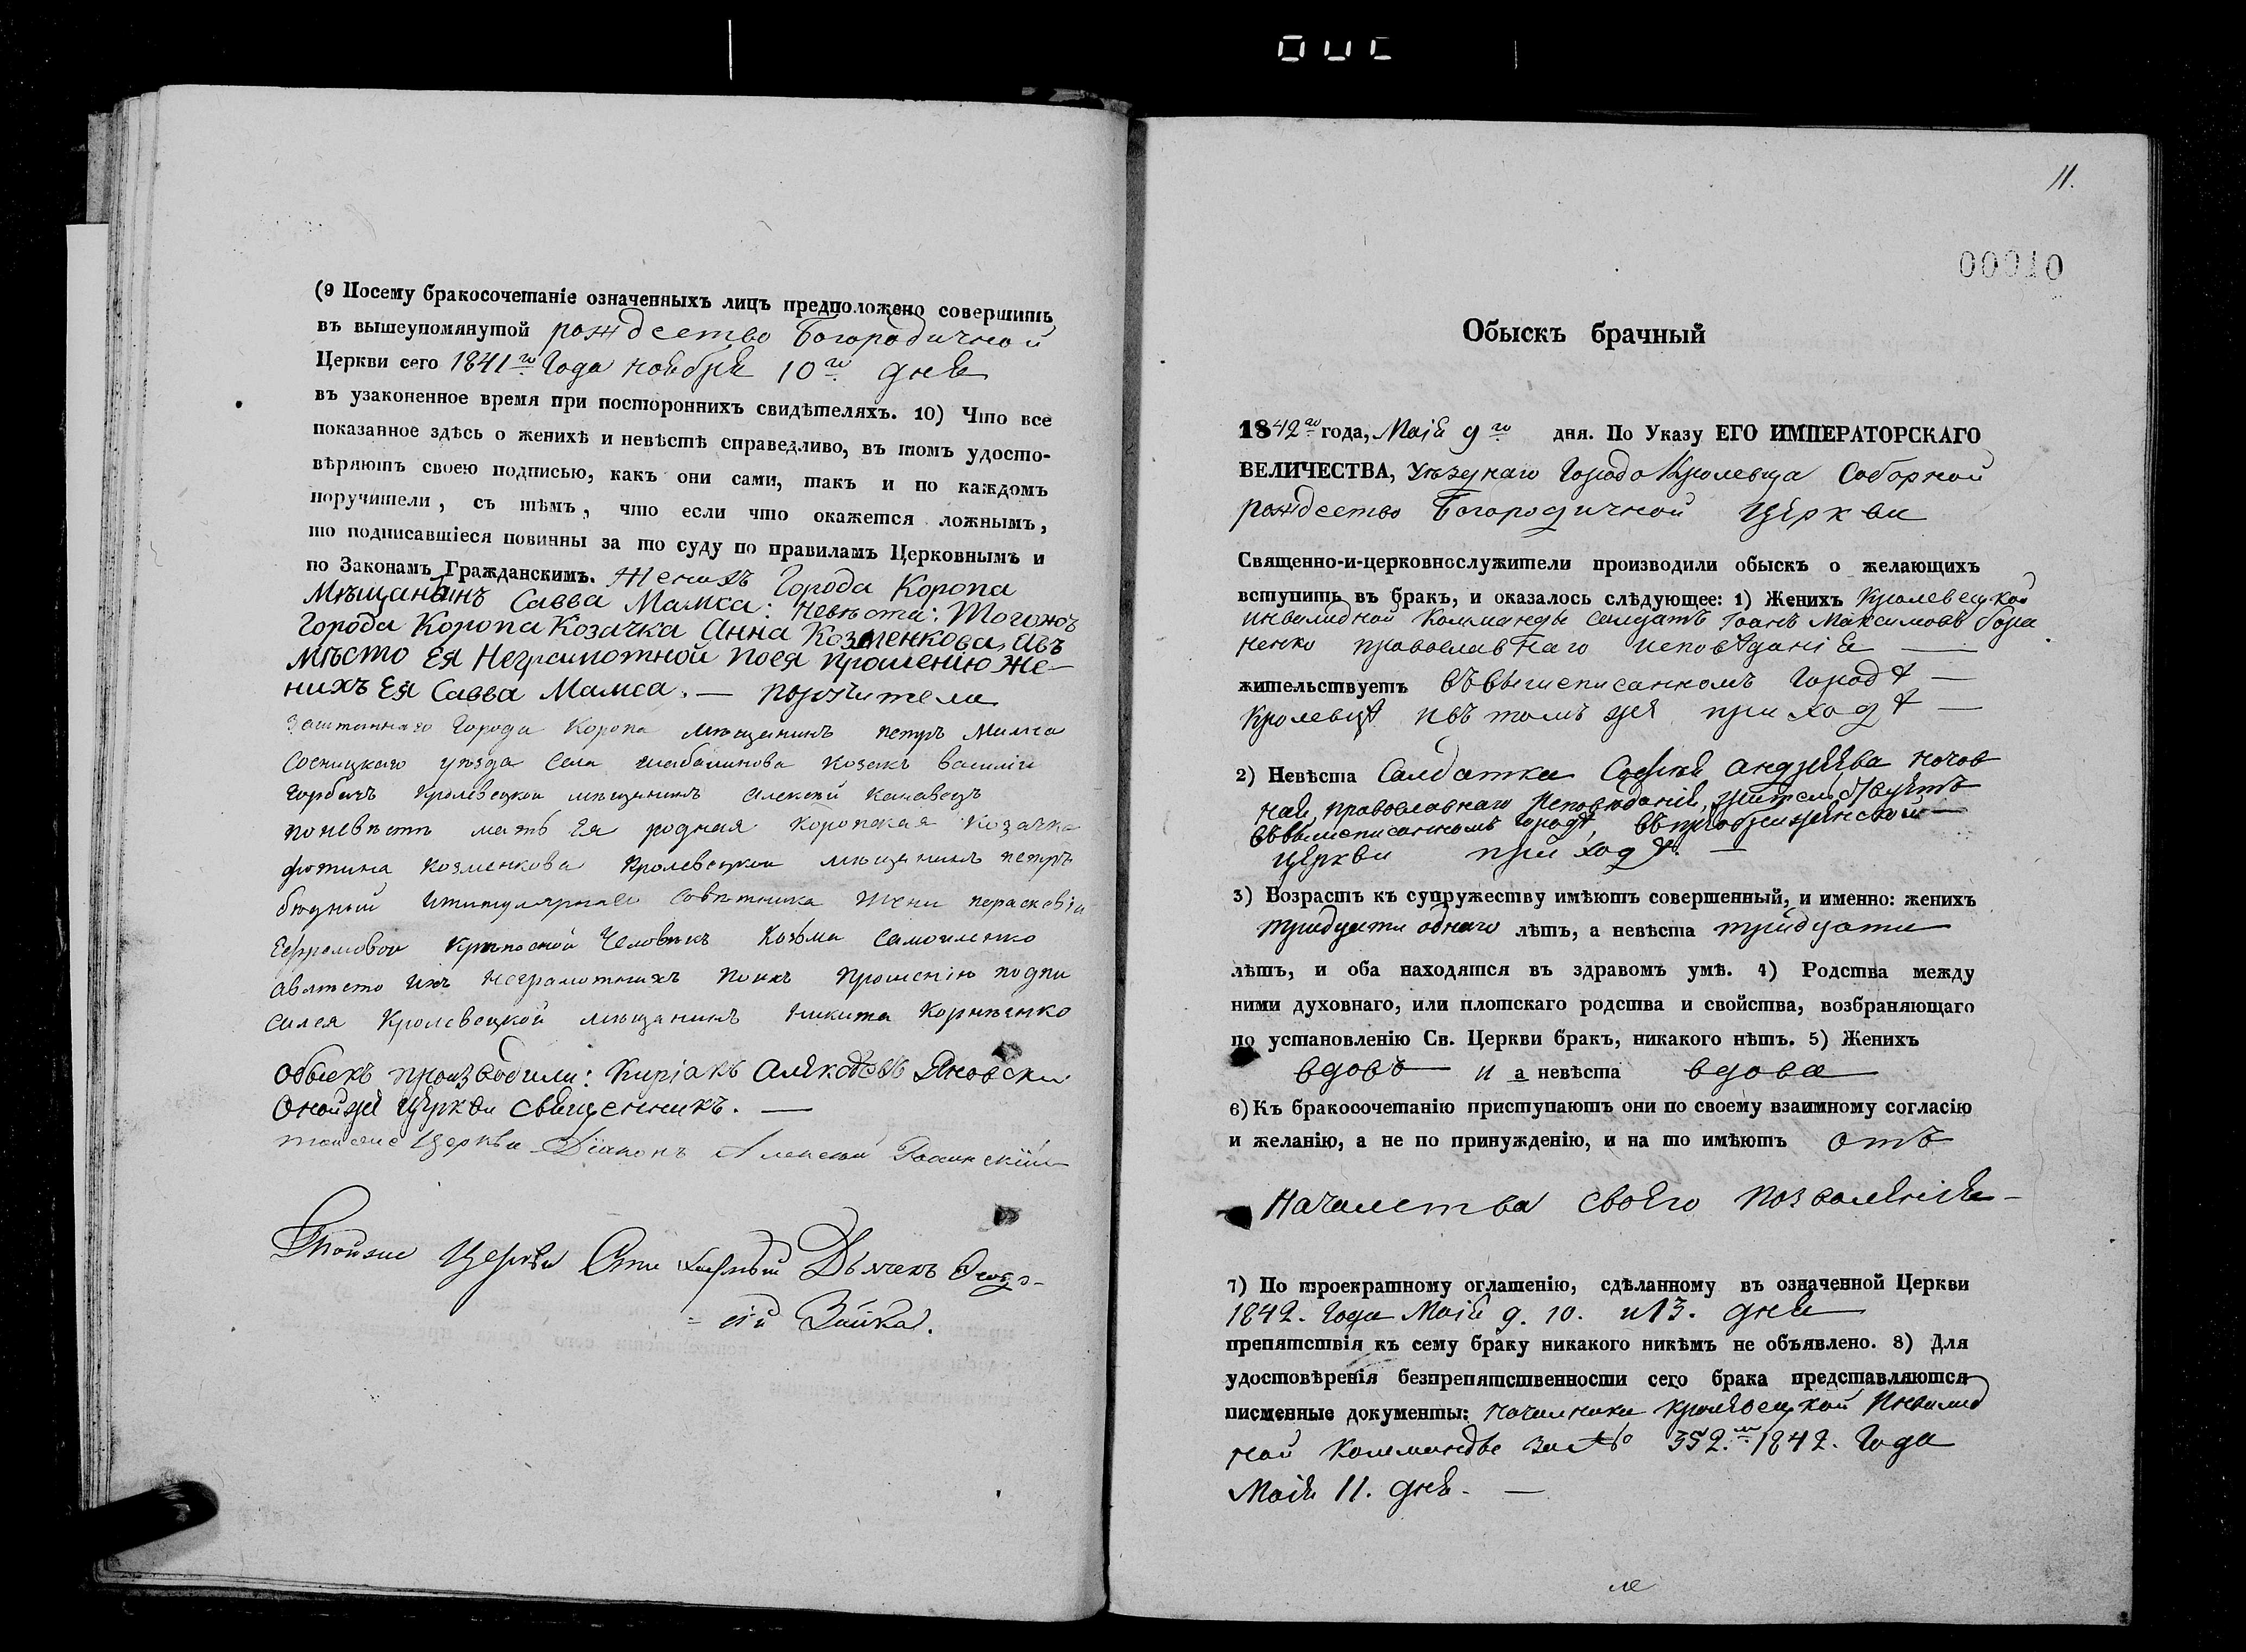 (9 Посему бракосочетаніе означенныхъ лицъ предположено совершить
въ вышеупомянутой рождество Богородичной
Церкви сего 1841го Года ноября 10го дня
въ узаконенное время при постороннихъ свидѣтеляхъ. 10) Что все
показанное здѣсь о женихѣ и невѣстѣ справедливо, въ томъ удосто-
вѣряютъ своею подписью, какъ они сами, такъ и по каждомъ
поручители, съ тѣмъ, что если что окажется ложнымъ,
то подписавшіеся повинны за то суду по правиламъ Церковнымъ и
по Законамъ Гражданскимъ. Женихъ Города Коропа
Мѣщанинъ Савва Мамса: Невѣста: Тогожъ
Города Коропа Козачка Анна Козменкова, Авъ
мѣсто Ея Неграмотной поея прошенію Же-
нихъ Ея Савва Мамса. — поручители
Заштатнаго Города Коропа мѣщанинъ петръ Мамса
Сосницкаго уѣзда Села шабалинова козакъ василій
Горбачъ Кролевецкой мѣщанинъ алексѣй Канавецъ
поневѣстѣ мать Ея родная Коропская Козачка
фотина Козменкова Кролевецкой мѣщанинъ петръ
титулярнаго Совѣтника Жени параскевіи
Ефремовой крѣпосной Человѣкъ Козьма Самоиленко
авмѣсто ихъ неграмотнихъ поихъ прошенію подпи
сался Кролевецкой мѣщанинъ Никита Корнѣенко
Обыскъ производили: Киріакъ Яновски
Онойже Церкви священникъ. —
тойже Церкви Діаконъ Алексѣй
Тойже Церкви Дьячекъ
= сій Заика.
11.
00010
Обыскъ брачный
1842го года, Маія 9го дня. По Указу ЕГО ИМПЕРАТОРСКАГО
ВЕЛИЧЕСТВА, уѣзднаго Города Кролевца Соборной
рождество Богородичной Церкви
Священно-и-церковнослужители производили обыскъ о желающихъ
вступить въ бракъ, и оказалось слѣдующее: 1) Женихъ Кролевецкой
инвалидной Комманды Салдатъ Іоанъ Максимовъ Гора
ненко православнаго исповѣданія —
жительствуетъ въвышеписанномъ Городѣ —
Кролевцѣ ивъ томъ же приходѣ —
2) Невѣста Салдатка Софія андреева Ночов
ная, православнаго исповѣданія, жительствуетъ
въвышеписанномъ Городѣ, въпреображенской —
Церкви приходѣ. —
3) Возрастъ къ супружеству имѣютъ совершенный, и именно: женихъ
тридцати однаго лѣтъ, а невѣста тридцати
лѣтъ, и оба находятся въ здравомъ умѣ. 4) Родства между
ними духовнаго, или плотскаго родства и свойства, возбраняющаго
по установленію Св. Церкви бракъ, никакого нѣтъ. 5) Женихъ
вдовъ и а невѣста вдова
6) Къ бракосочетанію приступаютъ они по своему взаимному согласію
и желанію, а не по принужденію, и на то имѣютъ отъ
Началства своего позволенія —
7) По троекратному оглашенію, сдѣланному въ означенной Церкви
1842. Года Маія 9. 10. и 13. дня
препятствія къ сему браку никакого никѣмъ не объявлено. 8) Для
удостовѣренія безпрепятственности сего брака представляются
писменные документы: Началника Кролевецкой Инвалид
ной Комманды за № 352.м 1842. Года
Маія 11. дня. —